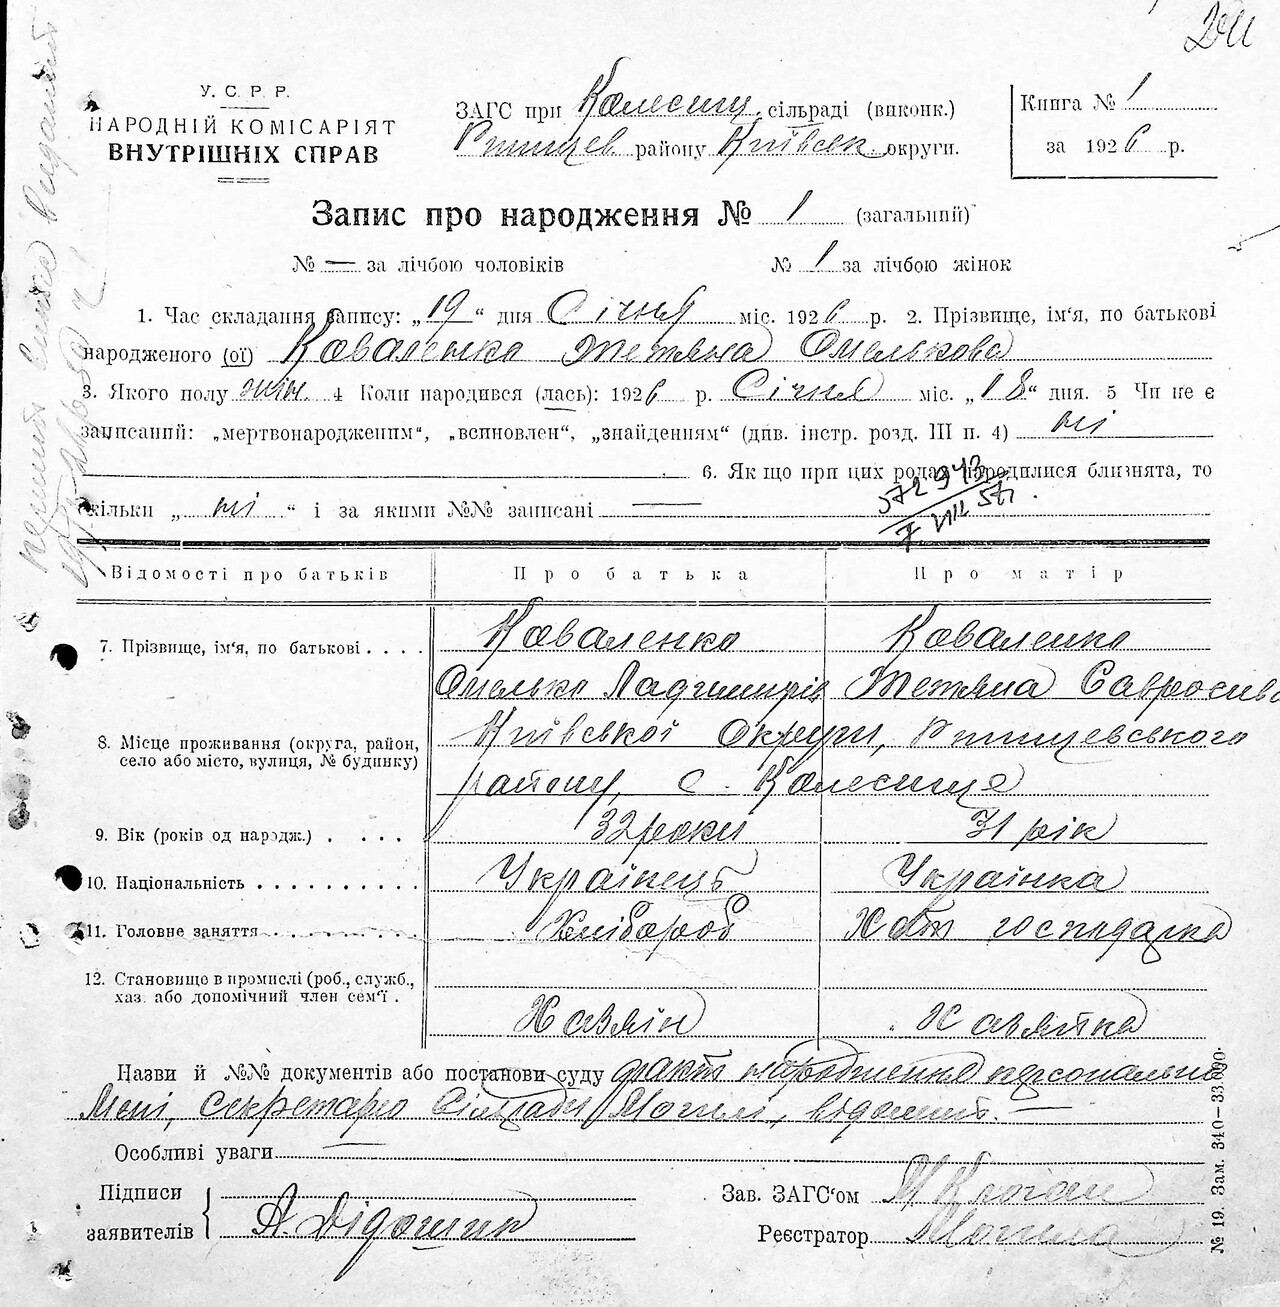 У. С. Р. Р.
НАРОДНІЙ КОМІСАРІЯТ
ВНУТРІШНІХ СПРАВ
ЗАГС при Калесищ. сільраді (виконк.)
Ртищев. району Київськ. округи.
Книга № 1
за 1926 р.
Запис про народження № 1 (загальний)
№ — за лічбою чоловіків № 1 за лічбою жінок
1. Час складання запису: „19“ дня Січня міс. 1926 р. 2. Прізвище, ім'я, по батькові
народженого (ої) Коваленко Тетяна Омелькова
3. Якого полу жін. 4 Коли народився (лась): 1926 р. Січня міс. „18“ дня. 5 Чи не є
записаний: „мертвонародженим“, „всиновлен“, „знайденням“ (див. інстр. розд. III п. 4) ні
6. Як що при цих родах народилися близнята, то
скільки „ ні “ і за якими №№ записані —
572943
7 VIII 57
Відомості про батьків Про батька Про матір
7. Прізвище, ім'я, по батькові . . . . Коваленко Коваленко
Омелько Ладимирів Тетяна
8. Місце проживання (округа, район, село або місто, вулиця, № будинку) Київської Округи, Ртищевського
району, с. Калесище
9. Вік (років од народж.) . . . . . 32 роки 31 рік
10. Національність . . . . . . . . . . Українець Українка
11. Головне заняття . . . . . . . . . Хлібороб Хатн господарка
12. Становище в промислі (роб., служб.,
хаз. або допомічний член сем'ї . Хазяїн Хазяйка
Назви й №№ документів або постанови суду факт народження персонально
Мені, секретарю Сільради Могилі, відомий. —
Особливі уваги —
Підписи
заявителів А. Дідошин
Зав. ЗАГС'ом
Реєстратор Могила
№ 19. Зам. 340—33.000.